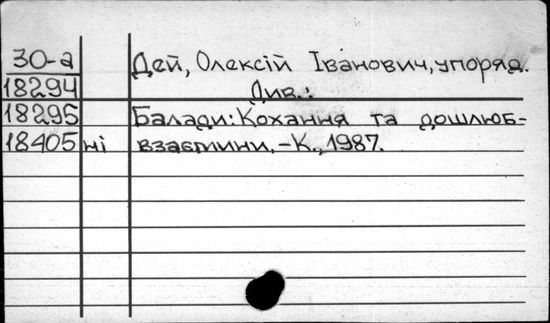 30-а Дей, Олексій Іванович, упоряд.
18294 Див.:
18295 Балади: Кохання та дошлюб-
18405 ні взаємини. – К., 1987.